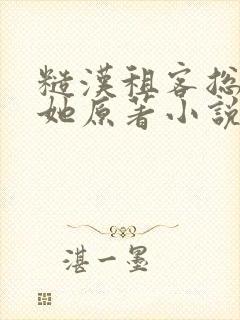 糙漢租客總
她原著小說
湛一墨